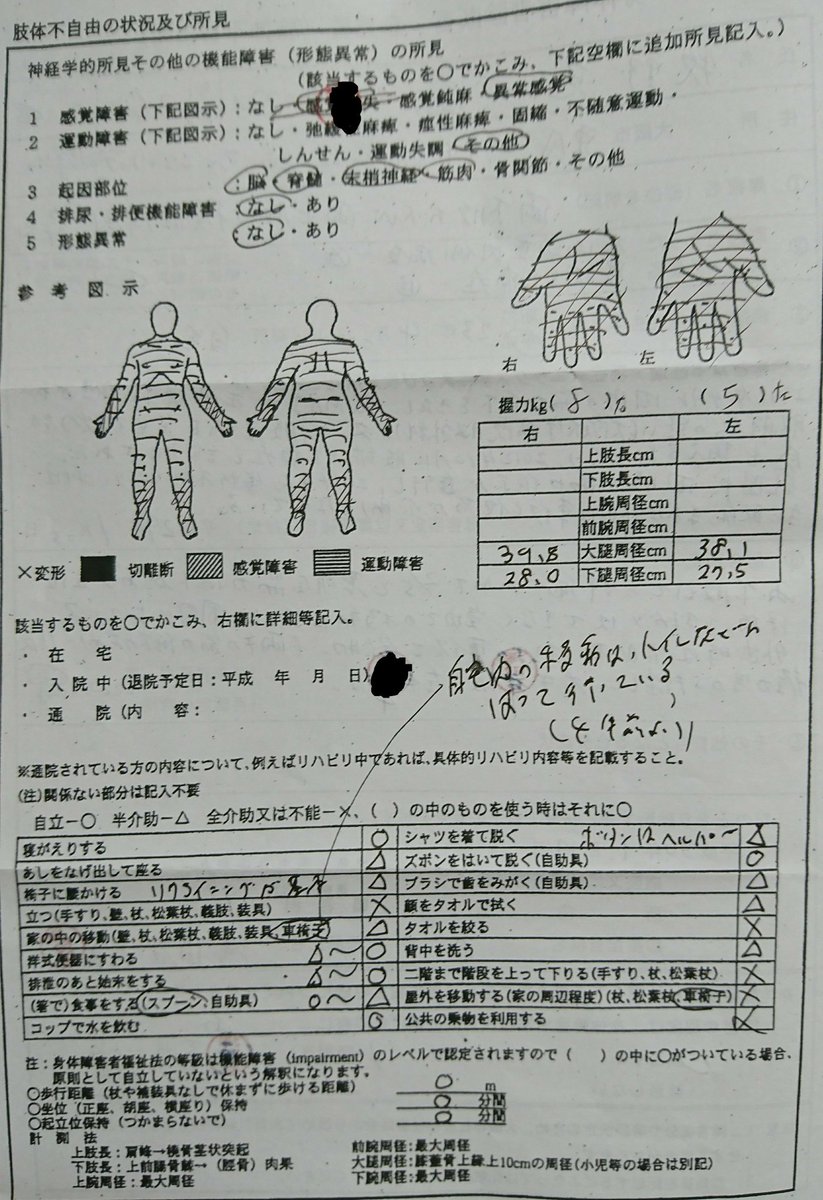 肢体不自由の状況及び所見
神経学的所見その他の機能障害(形態異常)の所見
(該当するものを〇でかこみ、下記空欄に追加所見記入。)
1 感覚障害(下記図示):なし・感 失・感覚鈍麻・異常感覚
2 運動障害(下記図示):なし・弛緩性麻痺・痙性麻痺・固縮・不随意運動・
しんせん・運動失調・その他
3 起因部位 :脳・脊髄・末梢神経・筋肉・骨関節・その他
4 排尿・排便機能障害 :なし・あり
5 形態異常 :なし・あり
参考図示
右 左
握力kg(8) (5)
右 左
上肢長cm
下肢長cm
上腕周径cm
前腕周径cm
39.8 大腿周径cm 38.1
28.0 下腿周径cm 27.5
×変形 切離断 感覚障害 運動障害
該当するものを〇でかこみ、右欄に詳細等記入。
・在 宅
・入院中(退院予定日:平成 年 月 日)
・通 院(内 容:
自宅内の移動は、トイレなど
はって行っている
※通院されている方の内容について、例えばリハビリ中であれば、具体的リハビリ内容等を記載すること。
(注)関係ない部分は記入不要
自立-〇 半介助-△ 全介助又は不能-×、( )の中のものを使う時はそれに〇
寝がえりする 〇 シャツを着て脱ぐ ボタンはヘルパー △
あしをなげ出して座る △ ズボンをはいて脱ぐ(自助具) 〇
椅子に腰かける リクライニング △ ブラシで歯をみがく(自助具) △
立つ(手すり、壁、杖、松葉杖、義肢、装具) × 顔をタオルで拭く △
家の中の移動(壁、杖、松葉杖、義肢、装具、車椅子) △ タオルを絞る ×
洋式便器にすわる △~〇 背中を洗う △
排泄のあと始末をする △~〇 二階まで階段を上って下りる(手すり、杖、松葉杖) ×
(箸で)食事をする(スプーン、自助具) 〇~△ 屋外を移動する(家の周辺程度)(杖、松葉杖、車椅子) ×
コップで水を飲む 〇 公共の乗物を利用する ×
注:身体障害者福祉法の等級は機能障害(impairment)のレベルで認定されますので( )の中に〇がついている場合、
原則として自立していないという解釈になります。
〇歩行距離(杖や補装具なしで休まずに歩ける距離) 0 m
〇坐位(正座、胡座、横座り)保持 0 分間
〇起立位保持(つかまらないで) 0 分間
計測法
上肢長:肩峰→橈骨茎状突起 前腕周径:最大周径
下肢長:上前腸骨棘→(脛骨)内果 大腿周径:膝蓋骨上縁上10cmの周径(小児等の場合は別記)
上腕周径:最大周径 下腿周径:最大周径